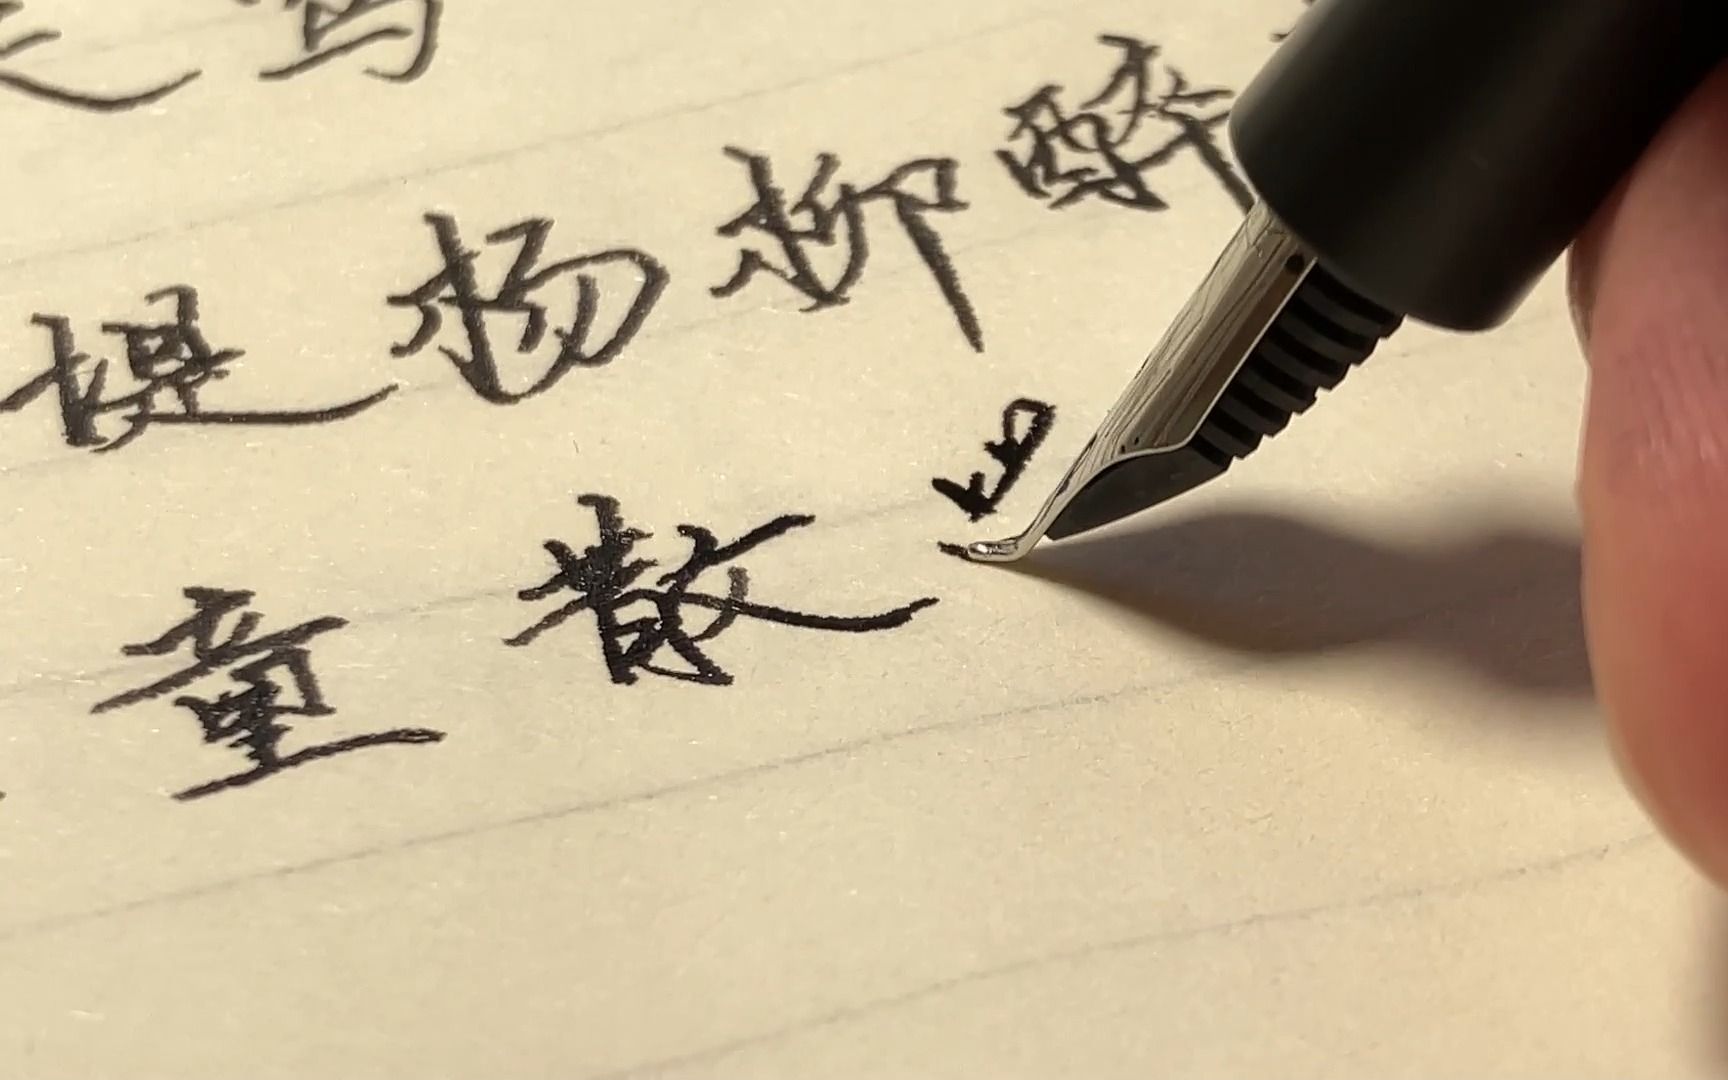 莺
堤杨柳醉
童散